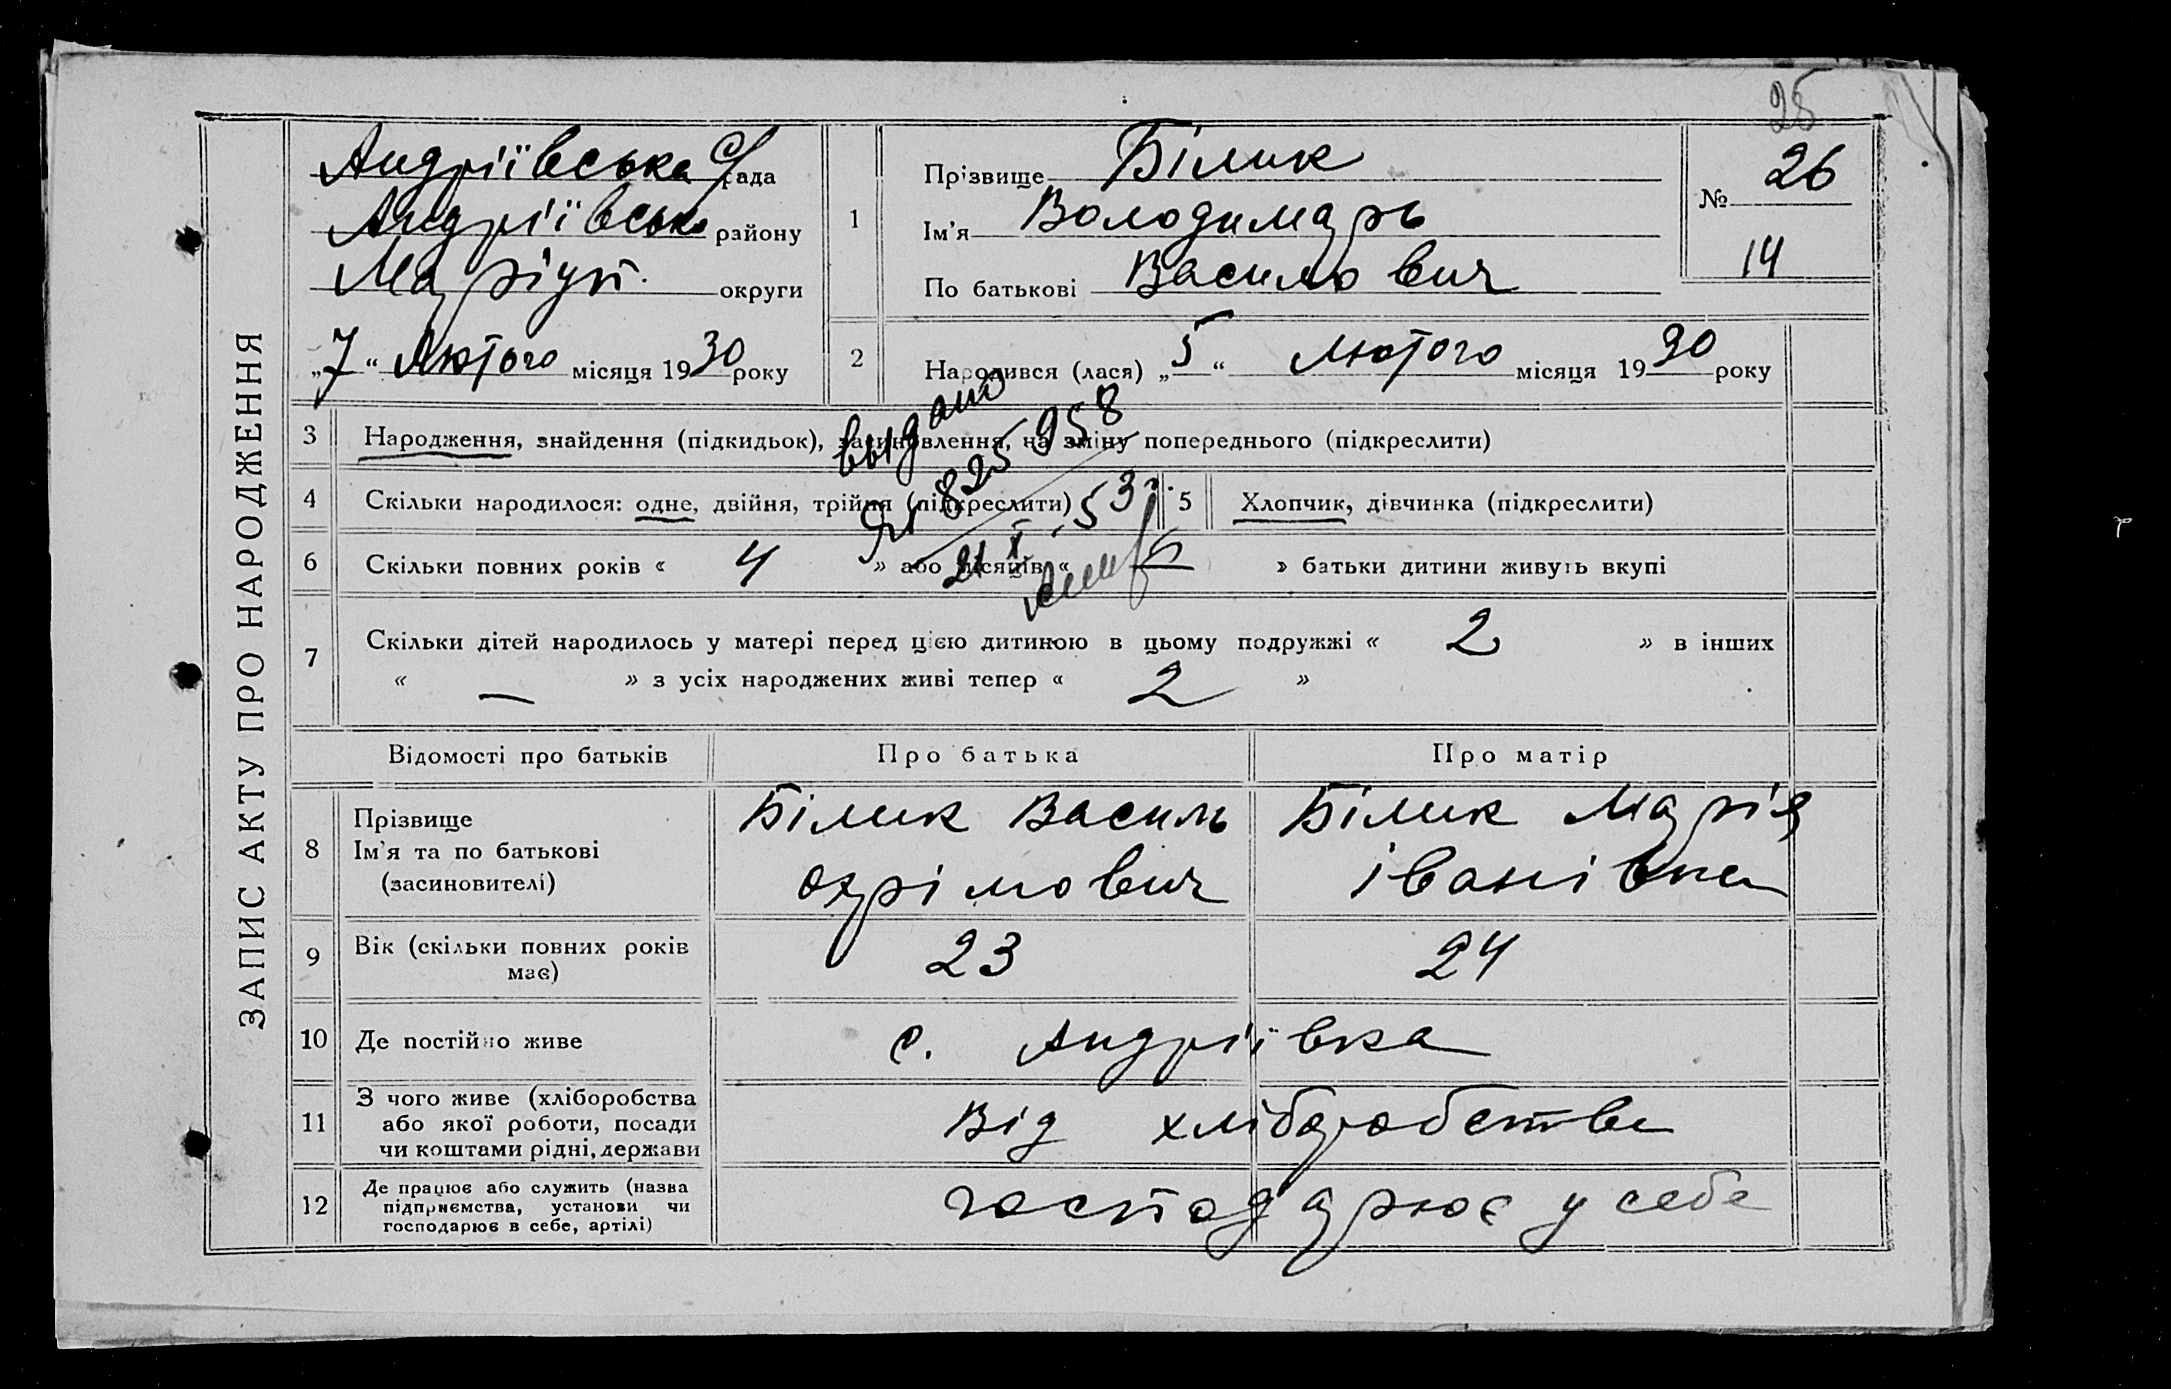 25
ЗАПИС АКТУ ПРО НАРОДЖЕННЯ
Андріївська с/рада
Андріївськ району
Маріуп. округи
„7“ Лютого місяця 1930 року
1
Прізвище Білик
Ім'я Володимарь
По батькові Васильович
№ 26
14
2 Народився (лася) „5“ Лютого місяця 1930 року
3 Народження, знайдення (підкидьок), засиновлення, на зміну попереднього (підкреслити)
выдано
825958
4 Скільки народилося: одне, двійня, трійня (підкреслити) 5 Хлопчик, дівчинка (підкреслити)
21 X 53 г.
6 Скільки повних років « 4 » або місяців « » батьки дитини живуть вкупі
7 Скільки дітей народилось у матері перед цією дитиною в цьому подружжі « 2 » в інших
« — » з усіх народжених живі тепер « 2 »
Відомості про батьків Про батька Про матір
8 Прізвище
Ім'я та по батькові
(засиновителі)
Білик Василь
Охрімович
Білик Марія
Іванівна
9 Вік (скільки повних років
має)
23 24
10 Де постійно живе с. Андріївка
11 З чого живе (хліборобства
або якої роботи, посади
чи коштами рідні, держави
Від хліборобства
12 Де працює або служить (назва
підприємства, установи чи
господарює в себе, артілі)
господарює у себе